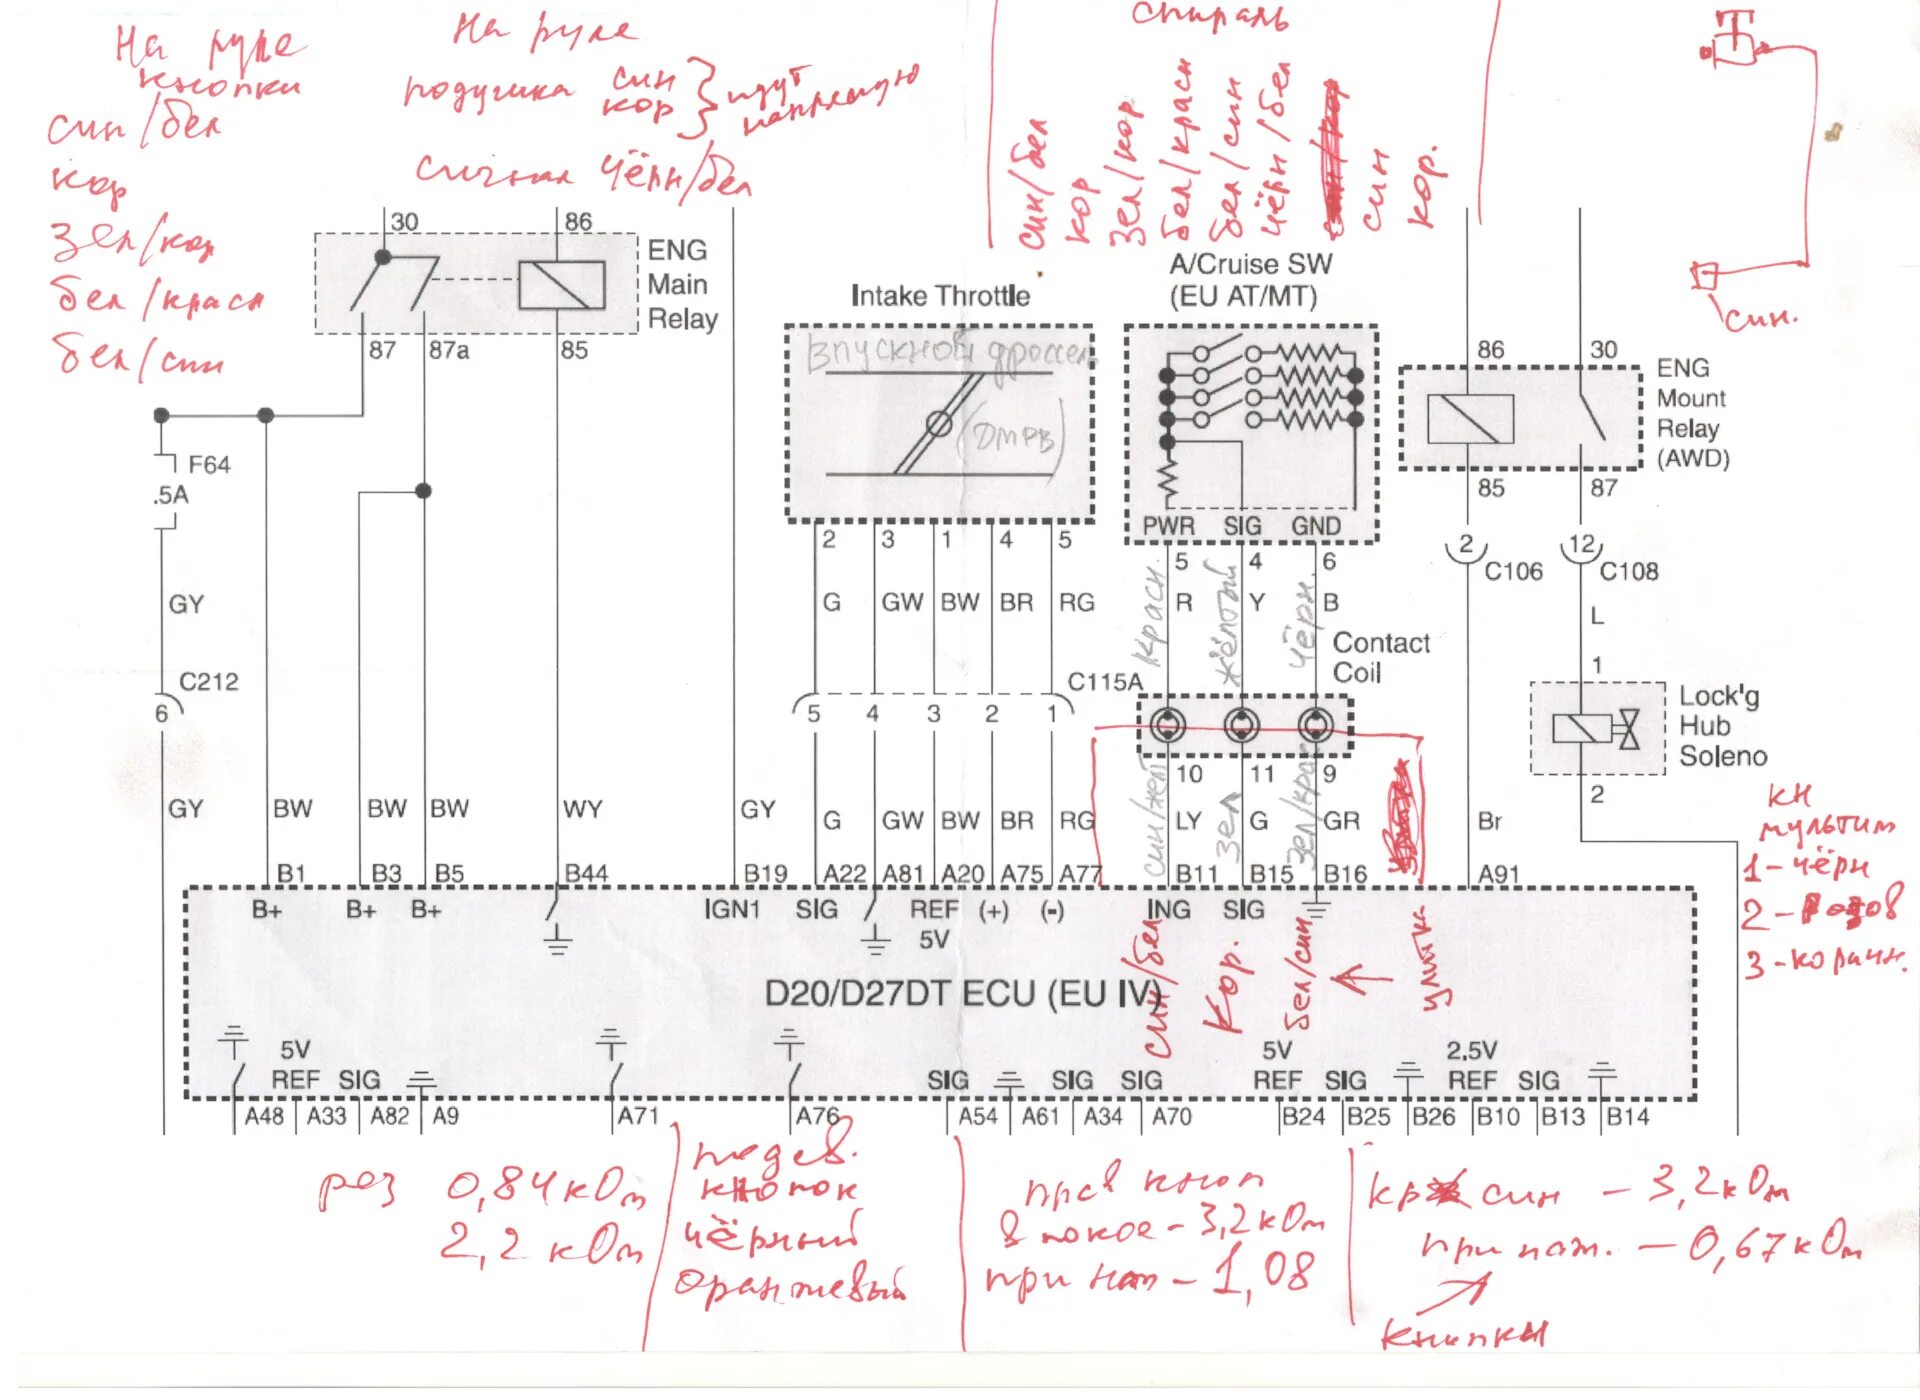 На руле
кнопки
син/бел
кор
зел/кор
бел/красн
бел/син
На руле
подушка син
кор
идут
напрямую
сигнал чёрн/бел
спираль
син/бел
кор
зел/кор
бел/красн
бел/син
чёрн/бел
син
кор.
син.
30
86
ENG
Main
Relay
87
87a
85
F64
.5A
GY
C212
6
GY
BW
BW
BW
WY
GY
Intake Throttle
Впускной дроссель
(ДМРВ)
2 3 1 4 5
G GW BW BR RG
C115A
5 4 3 2 1
G GW BW BR RG
A/Cruise SW
(EU AT/MT)
PWR SIG GND
5 4 6
R Y B
красн.
жёлтый
чёрн.
Contact
Coil
10 11 9
LY G GR
син/жёл
зел
зел/кра
86 30
ENG
Mount
Relay
(AWD)
85 87
2 12
C106 C108
L
1
Lock'g
Hub
Soleno
2
Br
кн
мультим
1-чёрн
2-розов
3-коричн.
B1 B3 B5 B44 B19 A22 A81 A20 A75 A77 B11 B15 B16 A91
B+ B+ B+ IGN1 SIG REF (+) (-) ING SIG
5V
D20/D27DT ECU (EU IV)
син/бел
кор.
бел/син
улитка
5V 5V 2.5V
REF SIG SIG SIG SIG REF SIG REF SIG
A48 A33 A82 A9 A71 A76 A54 A61 A34 A70 B24 B25 B26 B10 B13 B14
рез 0,84кОм
2,2кОм
кнопок
чёрный
оранжевый
прав кноп
в покое - 3,2кОм
при наж - 1,08
син - 3,2кОм
при наж. - 0,67кОм
кнопки